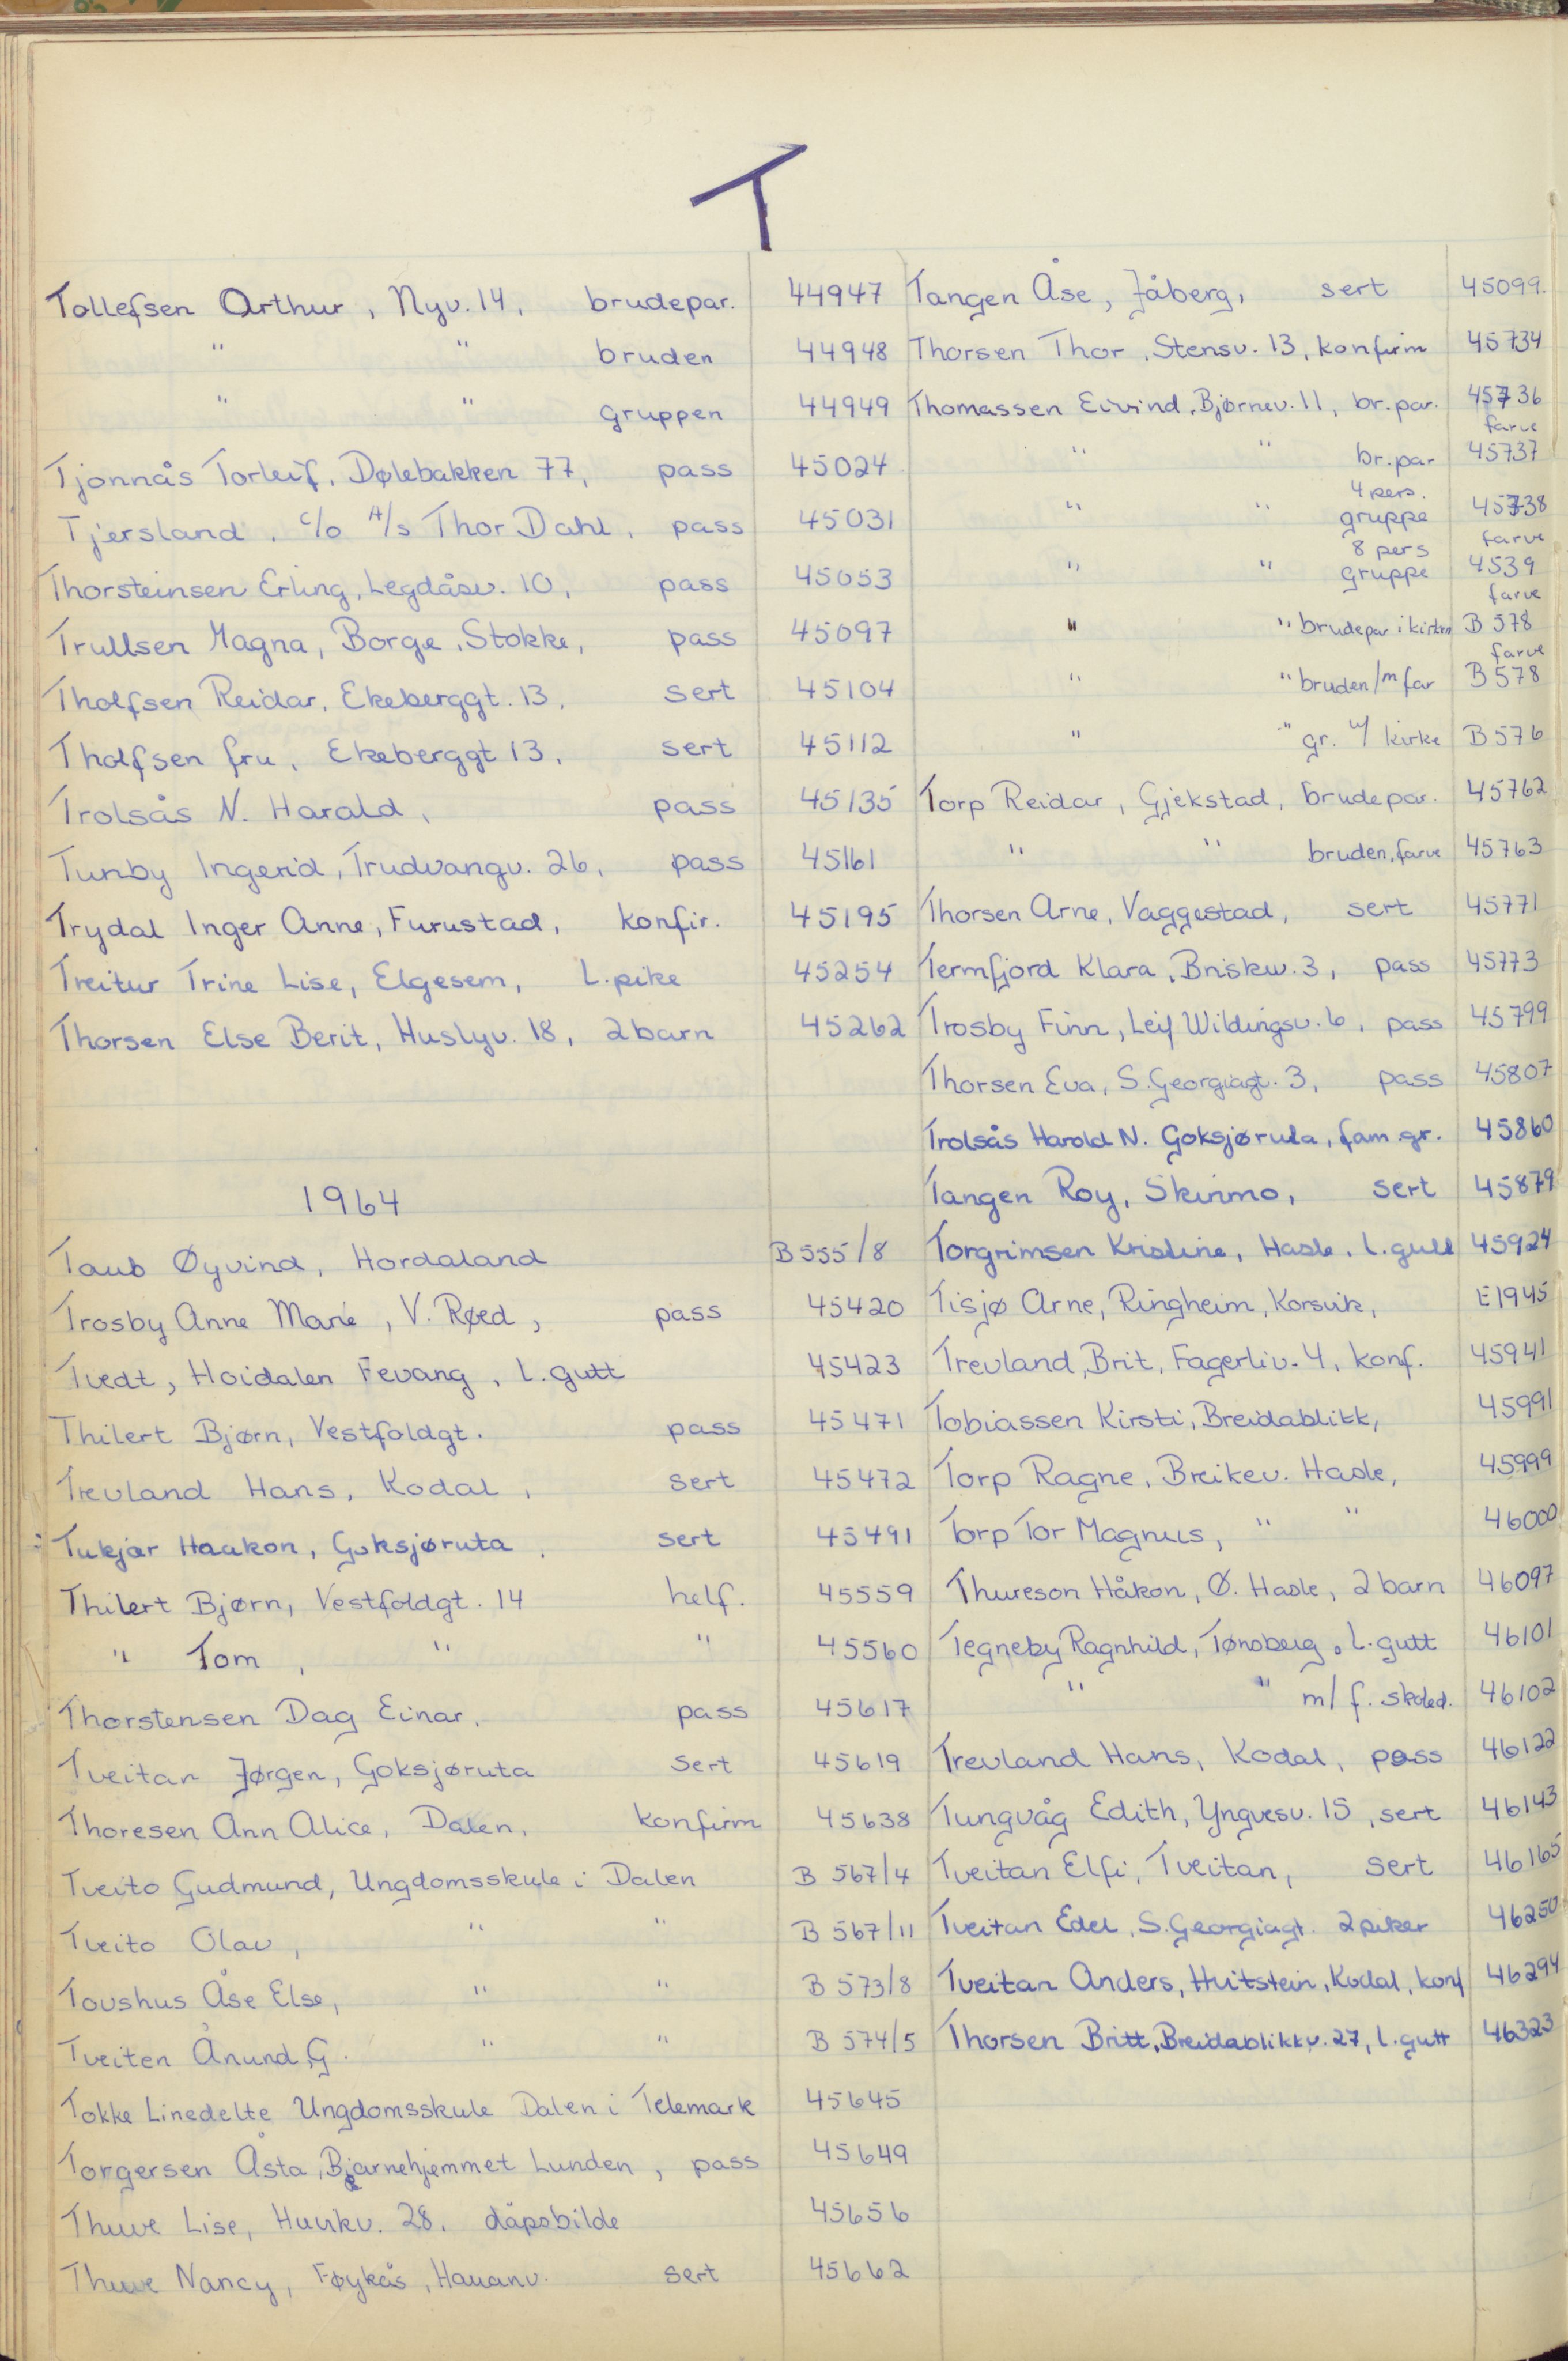 T
Tollefsen Arthur, Nyv. 14, brudepar. 44947
" " bruden 44948
" " gruppen 44949
Tjonnås Torleif, Dølebakken 77, pass 45024
Tjersland, c/o A/s Thor Dahl, pass 45031
Thorsteinsen Erling, Legdåsv. 10, pass 45053
Trullsen Magna, Borge, Stokke, pass 45097
Tholfsen Reidar, Ekeberggt. 13, sert 45104
Tholfsen fru, Ekeberggt 13, sert 45112
Trolsås N. Harald, pass 45135
Tunby Ingerid, Trudvangv. 26, pass 45161
Trydal Inger Anne, Furustad, konfir. 45195
Treitur Trine Lise, Elgesem, L. pike 45254
Thorsen Else Berit, Huslyv. 18, 2 barn 45262
1964
Taub Øyvind, Hordaland B 555/8
Trosby Anne Marie, V. Røed, pass 45420
Tvedt, Hoidalen Fevang, l. gutt 45423
Thilert Bjørn, Vestfoldgt. pass 45471
Trevland Hans, Kodal, sert 45472
Tukjær Haakon, Goksjøruta, sert 45491
Thilert Bjørn, Vestfoldgt. 14 helf. 45559
" Tom, " " 45560
Thorstensen Dag Einar, pass 45617
Tveitan Jørgen, Goksjøruta sert 45619
Thoresen Ann Alice, Dalen, konfirm 45638
Tveito Gudmund, Ungdomsskule i Dalen B 567/4
Tveito Olav, " " B 567/11
Tovshus Åse Else, " " B 573/8
Tveiten Ånund G. " " B 574/5
Tokke Linedelte Ungdomsskule Dalen i Telemark 45645
Torgersen Åsta, Bjarnehjemmet Lunden, pass 45649
Thuve Lise, 28, dåpsbilde 45656
Thuve Nancy, Føykås, Hauanv. sert 45662
Tangen Åse, Jåberg, sert 45099.
Thorsen Thor, Stensv. 13, konfirm 45734
Thomassen Eivind, Bjørnev. 11, br. par. 45736
farve
" " br. par 45737
4 pers.
" " gruppe 45738
8 pers farve
" " gruppe 4539
farve
" " brudepar i kirken B 578
farve
" " bruden/m far B 578
" " gr. u/ kirke B 576
Torp Reidar, Gjekstad, brudepar. 45762
" " bruden, farve 45763
Thorsen Arne, Vaggestad, sert 45771
Termfjord Klara, Briskev. 3, pass 45773
Trosby Finn, Leif Wildingsv. 6, pass 45799
Thorsen Eva, S. Georgiagt. 3, pass 45807
Trolsås Harold N. Goksjøruta, fam. gr. 45860
Tangen Roy, Skinmo, sert 45879
Torgrimsen Kristine, Hasle, l. gutt 45924
Tisjø Arne, Ringheim, Korsvik, E1945
Trevland, Brit, Fagerliv. 4, konf. 45941
Tobiassen Kirsti, Breidablikk, 45991
Torp Ragne, Breikev. Hasle, 45999
Torp Tor Magnus, " " 46000
Thureson Håkon, Ø. Hasle, 2 barn 46097
Tegneby Ragnhild, Tønsberg, L. gutt 46101
" " m/ f. skoled. 46102
Trevland Hans, Kodal, pass 46122
Tungvåg Edith, Yngvesv. 15, sert 46143
Tveitan Elfi, Tveitan, sert 46165
Tveitan Edel, S. Georgiagt. 2 piker 46250
Tveitan Anders, Hvitstein, Kodal, konf 46294
Thorsen Britt, Breidablikkv. 27, l. gutt 46323